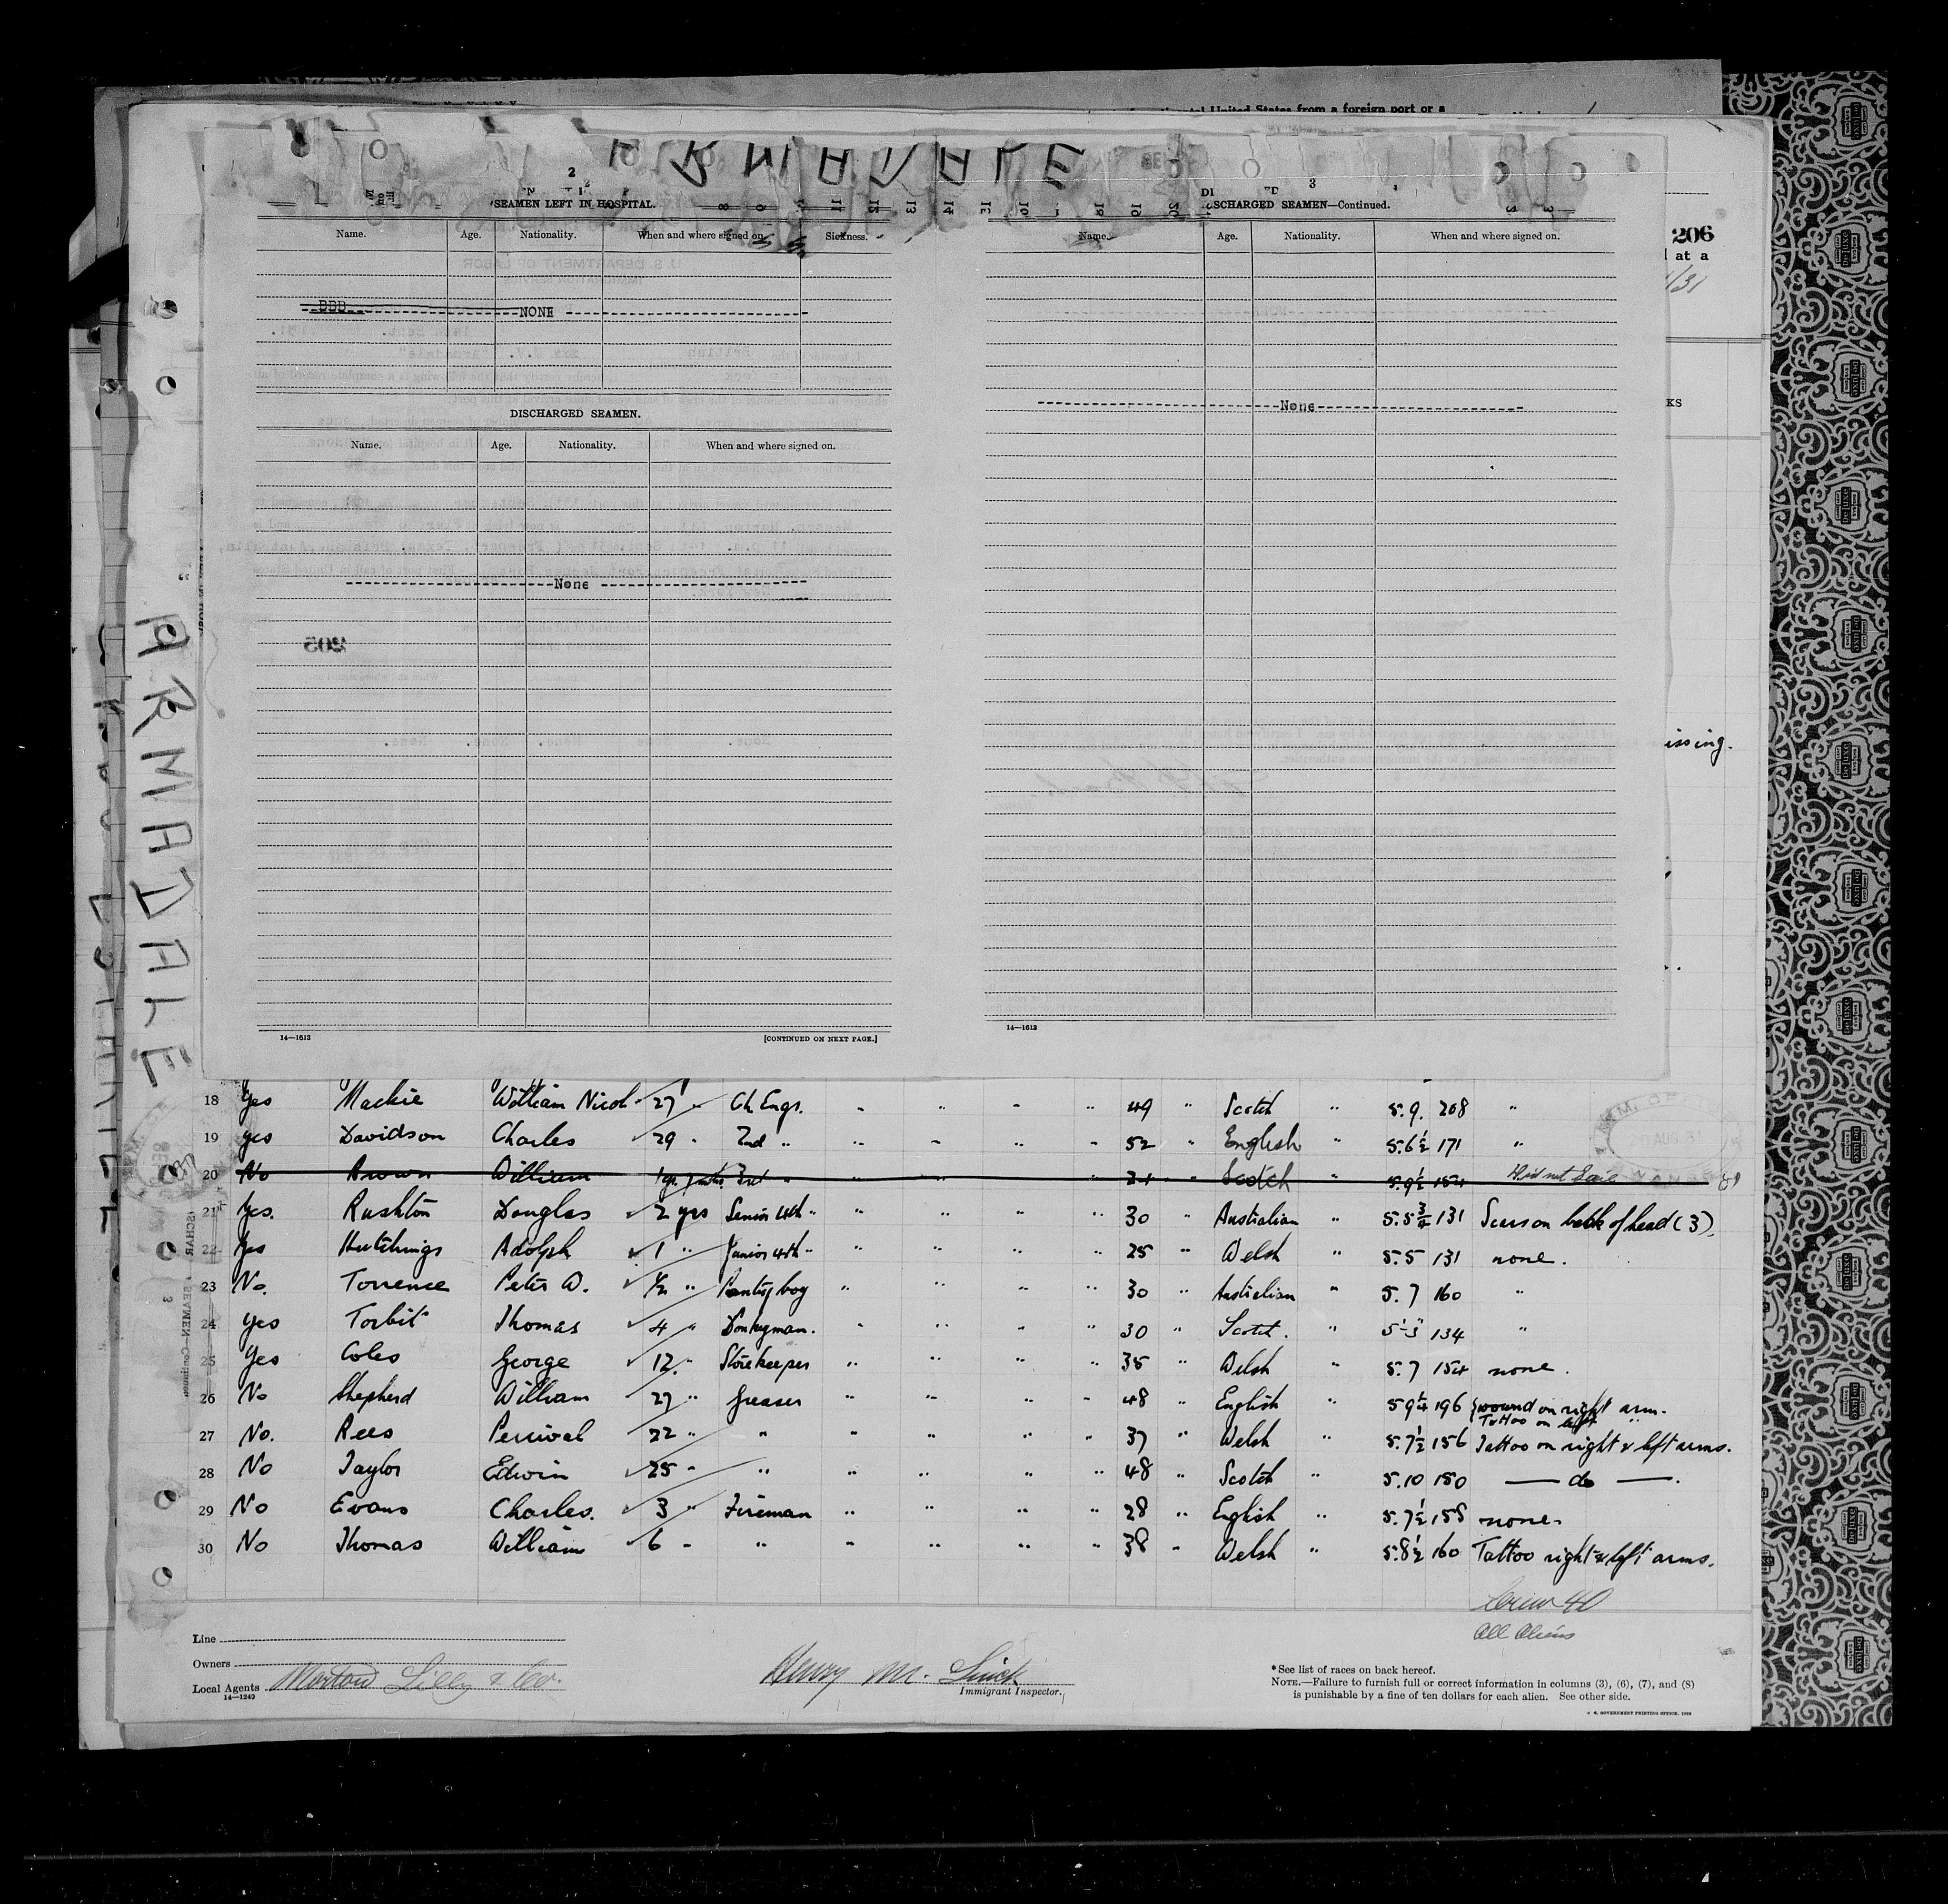 United States from a foreign port or a
ARMADALE
206
at a
/31
2
SEAMEN LEFT IN HOSPITAL.
Name. Age. Nationality. When and where signed on. Sickness.
BBB
NONE
DISCHARGED SEAMEN.
Name. Age. Nationality. When and where signed on.
None
205
14—1613 [CONTINUED ON NEXT PAGE.]
3
DISCHARGED SEAMEN—Continued.
Name. Age. Nationality. When and where signed on.
None
14—1613
KS
issing.
ARMADALE
18 Yes Mackie William Nicol 27 " Ch. Engr. " " " " 49 " Scotch " 5.9. 208 "
19 yes Davidson Charles 29 " 2nd " " " " " 52 " English " 5.6½ 171 "
20 No Brown William 3rd " Scotch " 5.9½ 154 Did not Sail
21 Yes. Rushton Douglas 2 yrs Senior 4th " " " " " 30 " Australian " 5.5¾ 131 Scars on back of head (3).
22 Yes Hutchings Adolph 1 " Junior 4th " " " " " 25 " Welsh " 5.5 131 none.
23 No. Torrence Peter W. ½ " Pantry boy " " " " 30 " Australian " 5.7 160 "
24 Yes Torbit Thomas 4 " Donkeyman. " " " " 30 " Scotch. " 5'-3" 134 "
25 Yes Coles George 12 " Storekeeper " " " " 35 " Welsh " 5.7 154 none.
26 No Shepherd William 27 " Greaser " " " " 48 " English " 5 9¼ 196 wound on right arm.
Tattoo on left "
27 No. Rees Percival 22 " " " " " " 37 " Welsh " 5.7½ 156 Tattoo on right & left arms.
28 No Taylor Edwin 25 " " " " " " 48 " Scotch " 5.10 150 — do —.
29 No Evans Charles. 3 " Fireman " " " " 28 " English " 5.7½ 158 none.
30 No Thomas William 6 " " " " " " 38 " Welsh " 5.8½ 160 Tattoo right & left arms.
Crew 40
All Aliens
Line
Owners
Local Agents Morton Lilly & Co.
14—1240
Henry M.
Immigrant Inspector.
*See list of races on back hereof.
NOTE.—Failure to furnish full or correct information in columns (3), (6), (7), and (8)
is punishable by a fine of ten dollars for each alien. See other side.
GOVERNMENT PRINTING OFFICE